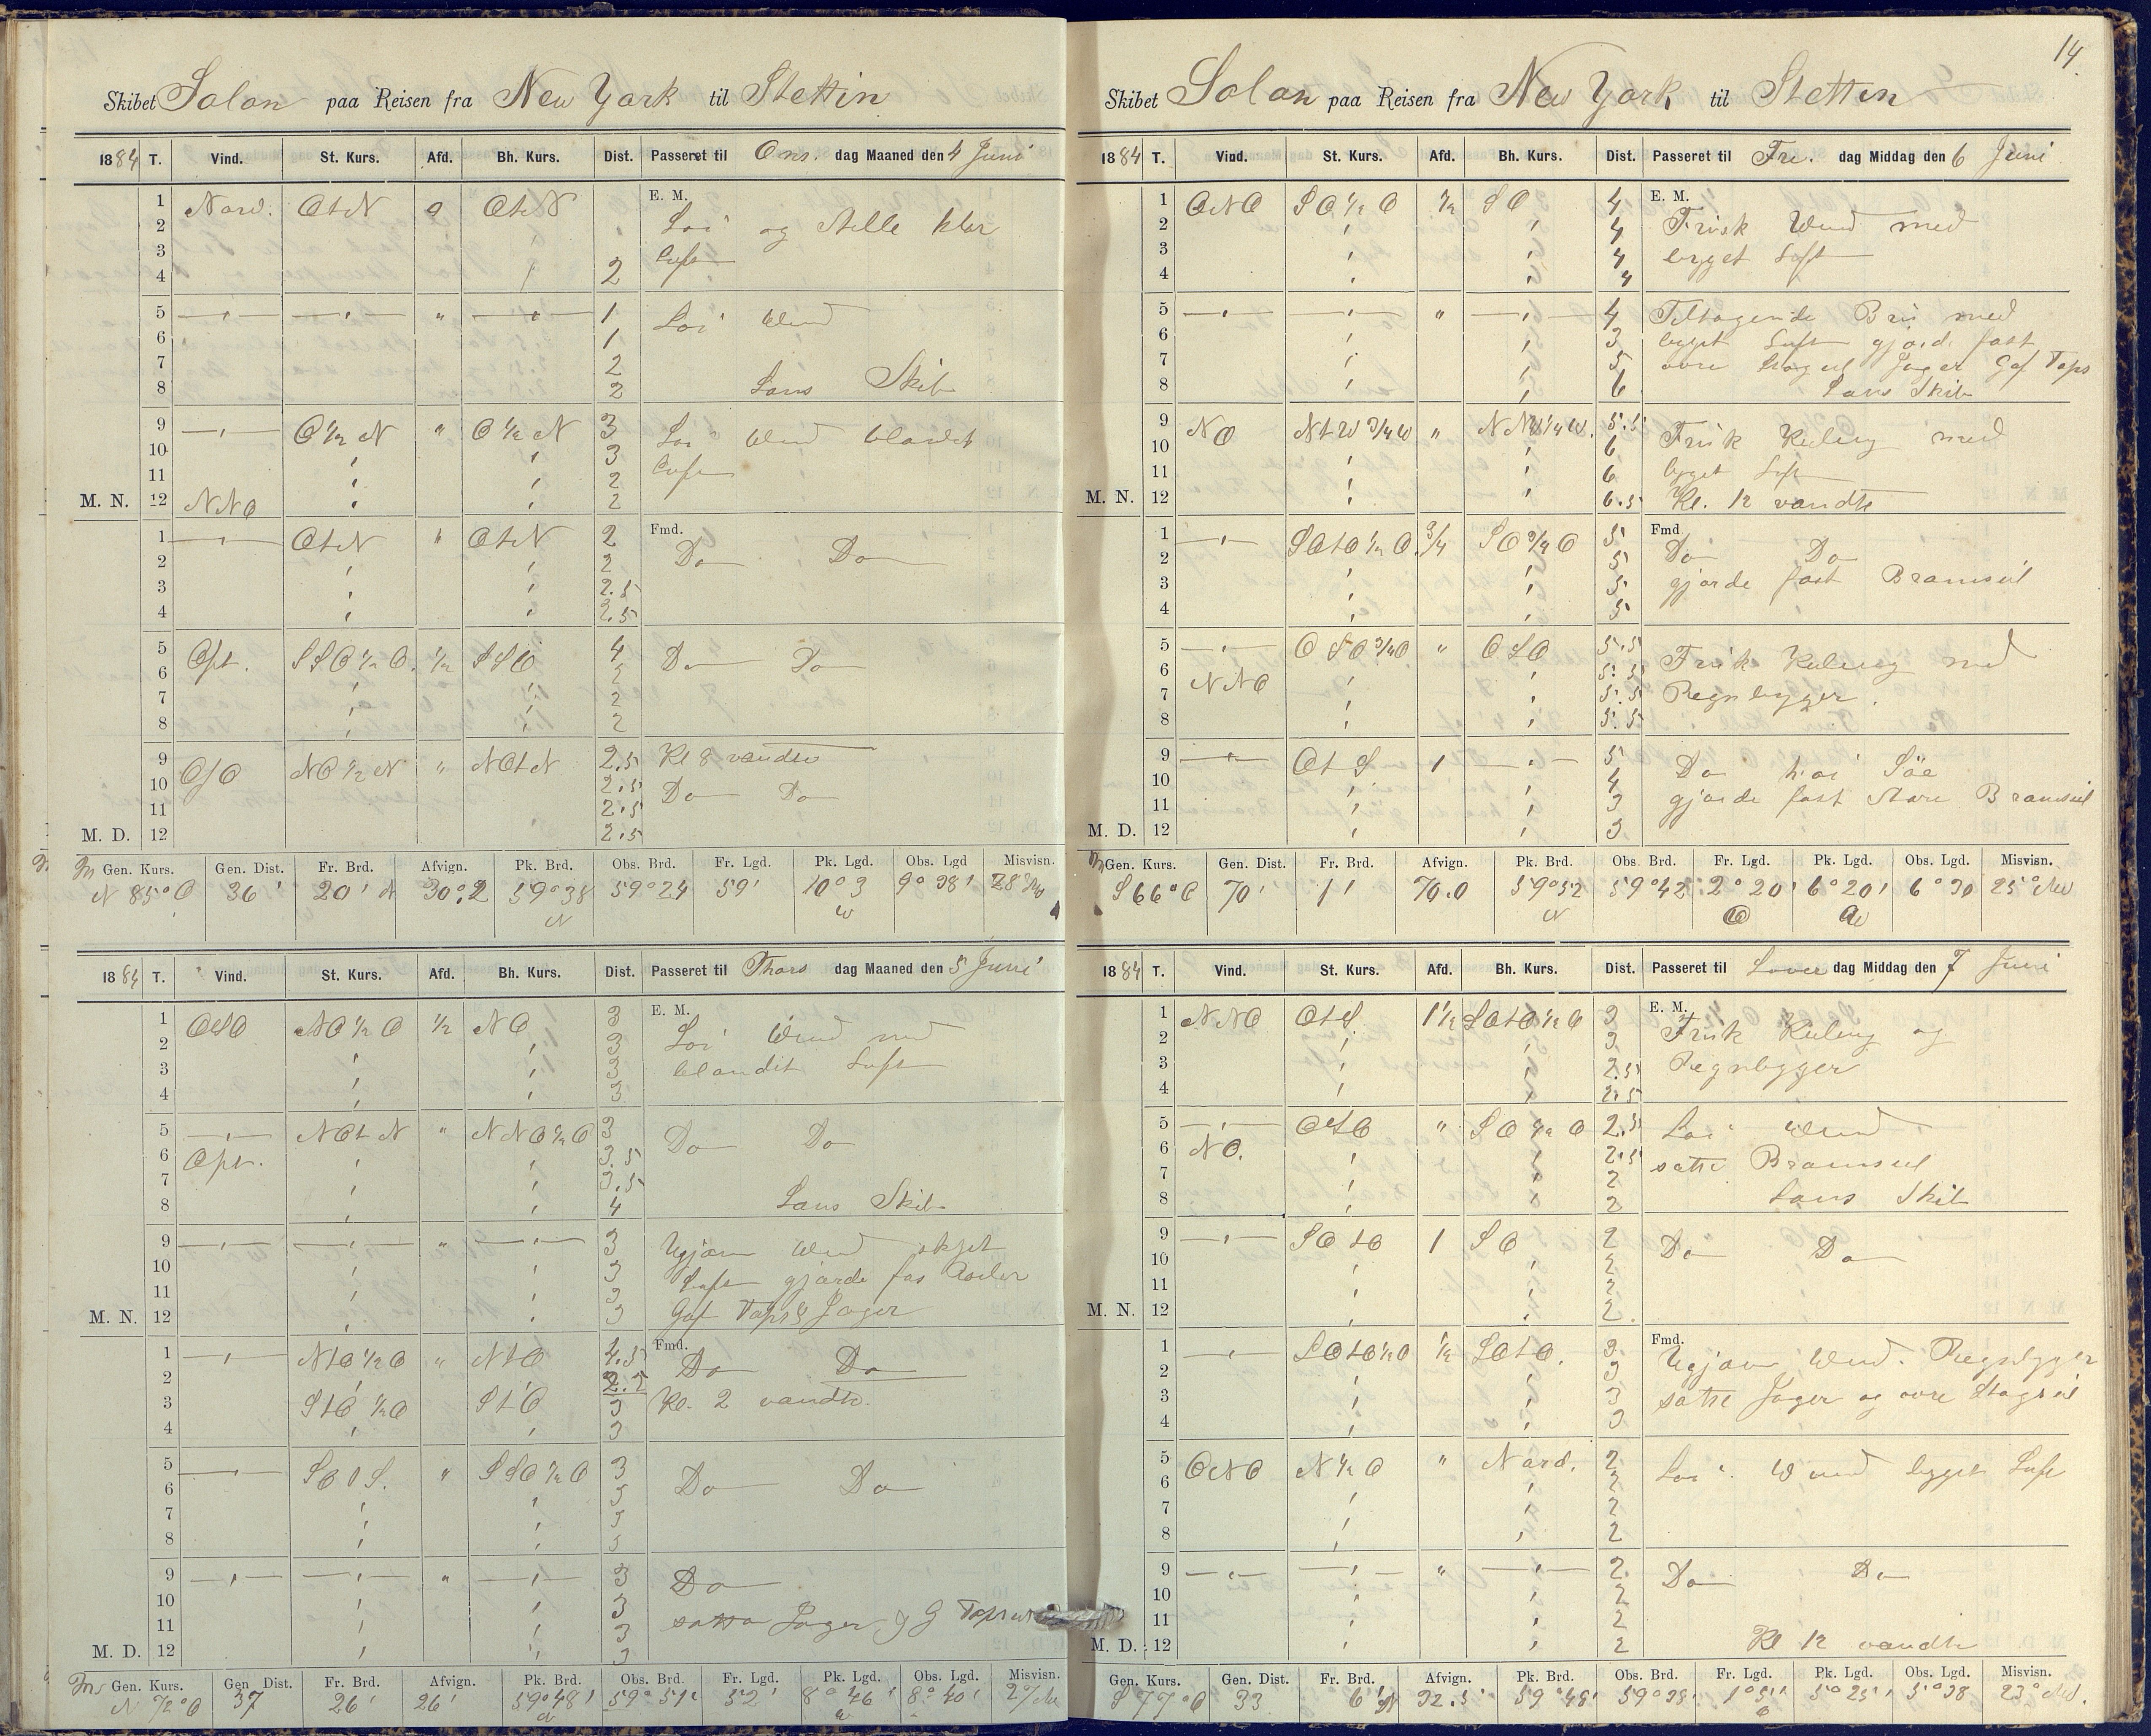 14
Skibet Solon paa Reisen fra New York til Stettin
1884 T. Vind. St. Kurs. Afd. Bh. Kurs. Dist. Passeret til Ons. dag Maaned den 4 Juni
E. M.
1 Nord. OtN 0 OtN
2 Løi og stille klar
3 Luft
4 2
5 1 Løi Vind
6 1
7 2
8 2 Lens Skib
9 O ½ N " O ½ N 3 Løi Vind blandet
10 3 Luft
11 2
M. N. 12 NNO 2
Fmd.
1 OtN " OtN 2 Do Do
2 2
3 2.5
4 2.5
5 Ost. SSO ½ O. ½ SSO 4 Do Do
6 2
7 2
8 2
9 OSO NO ½ N " NOtN 2.5 Kl 8 vendte
10 2.5 Do Do
11 2.5
M. D. 12 2.5
Gen. Kurs. Gen. Dist. Fr. Brd. Afvign. Pk. Brd. Obs. Brd. Fr. Lgd. Pk. Lgd. Obs. Lgd Misvisn.
N 85° O 36' 20' 30.2 59°38 N 59°24 59' 10°3 W 9°38' 28°
1884 T. Vind. St. Kurs. Afd. Bh. Kurs. Dist. Passeret til Thors dag Maaned den 5 Juni
E. M.
1 OSO NO ½ O ½ NO 3 Løi Vind med
2 3
3 3 blandet Luft
4 3
5 NOtN " NNO ½ O 3 Do Do
6 Ost. 3.5
7 3.5
8 4 Lens Skib
9 " 3 Ugjævn Vind skyet
10 3 Luft gjorde fas
11 3
M. N. 12 3 Gaf Tops & Jager
Fmd.
1 NtO ½ O " NtO 4.5 Do Do
2 2.5
3 StO ½ O StO 3 Kl. 2 vendte.
4 3
5 SOtS. " SSO ½ O 3 Do Do
6 3
7 3
8 3
9 " 3 Do
10 3
11 3 satte Jager og G Topseil
M. D. 12 3
Gen. Kurs. Gen Dist. Fr. Brd. Afvign. Pk. Brd. Obs. Brd. Fr. Lgd. Pk. Lgd. Obs. Lgd. Misvisn.
N 72° O 37 26' 26' 59°48' N 59°51' 52' 8°46' W 8°40' 27°
Skibet Solon paa Reisen fra New York til Stettin
1884 T. Vind. St. Kurs. Afd. Bh. Kurs. Dist. Passeret til Fre. dag Middag den 6 Juni
E. M.
1 ONO SO ½ O ½ SO 4 Frisk Vind med
2 4
3 4 byget Luft
4 4
5 " 4 Tiltagende Bris med
6 3 byget Luft gjord. fast
7 5 øvre Stagseil Jager Gaf Tops
8 6 Lens Skib
9 NO NtW ¾ W " NNW ¼ W. 5.5 Frisk Kuling med
10 6
11 6 byget Luft
M. N. 12 6.5 Kl. 12 vendte
Fmd.
1 SOtO ½ O. ¾ SO ¾ O 5 Do Do
2 5
3 5 gjorde fast Bramseil
4 5
5 OSO ¾ O " OSO 5.5 Frisk Kuling med
6 NNO 5.5
7 5.5 Regnbyger.
8 5.5
9 OtS 1 5 Do høi Søe
10 4
11 3 gjorde fast Store Bramseil
M. D. 12 3
Gen. Kurs. Gen. Dist. Fr. Brd. Afvign. Pk. Brd. Obs. Brd. Fr. Lgd. Pk. Lgd. Obs. Lgd. Misvisn.
S 66° O 70' 1' 70.0 59°52 N 59°42 2°20 O 6°20' W 6°30 25° NW
1884 T. Vind. St. Kurs. Afd. Bh. Kurs. Dist. Passeret til Løver dag Middag den 7 Juni
E. M.
1 NNO OtS. 1½ SOtO ½ O 3 Frisk Kuling og
2 3
3 2.5 Regnbyger
4 2.5
5 OSO " SO ½ O 2.5 Løi Vind
6 NO. 2.5 satte Bramseil
7 2
8 2 Lens Skib
9 SOtO 1 SO 2 Do Do
10 2
11 2
M. N. 12 2
Fmd.
1 SOtO ½ O ½ SOtO. 3 Ugjævn Vind. Regnbyger
2 3
3 3 satte Jager og øvre Stagseil
4 3
5 ONO N ½ O " Nord. 2 Løi Vind byget Luft
6 2
7 2
8 2
9 " 2 Do Do
10 2
11 2
M. D. 12 2 Kl 12 vendte
Gen. Kurs. Gen. Dist. Fr. Brd. Afvign. Pk. Brd. Obs. Brd. Fr. Lgd. Pk. Lgd. Obs. Lgd. Misvisn.
S 77° O 33 6' 32.5 59°48' 59°39' 1°5' O 5°25' 5°38 23° NW.